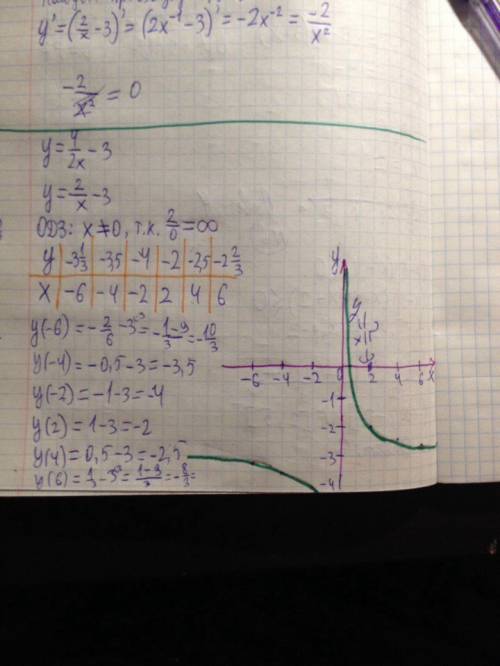 y' = (2/x - 3)' = (2x⁻¹ - 3)' = -2x⁻² = -2/x²
-2/x² = 0
y = 4/2x - 3
y = 2/x - 3
ОДЗ: x ≠ 0, т.к. 2/0 = ∞
y | -3 1/3 | -3,5 | -4 | -2 | -2,5 | -2 2/3
x | -6 | -4 | -2 | 2 | 4 | 6
y(-6) = -2/6 - 3 = (-1-9)/3 = -10/3
y(-4) = -0,5 - 3 = -3,5
y(-2) = -1 - 3 = -4
y(2) = 1 - 3 = -2
y(4) = 0,5 - 3 = -2,5
y(6) = 1/3 - 3 = = -8/3 =
y
-6 -4 -2 0 2 4 6 x
-1
-2
-3
-4